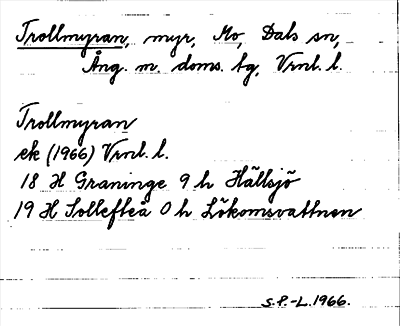 Trollmyran, myr, Mo, Dals sn,
Ång. m. doms. tg, Vrnl. l.
Trollmyran
ek (1966) Vrnl. l.
18 H Graninge 9 h Hällsjö
19 H Sollefteå 0 h Lökomsvattnen
S.P.-L. 1966.